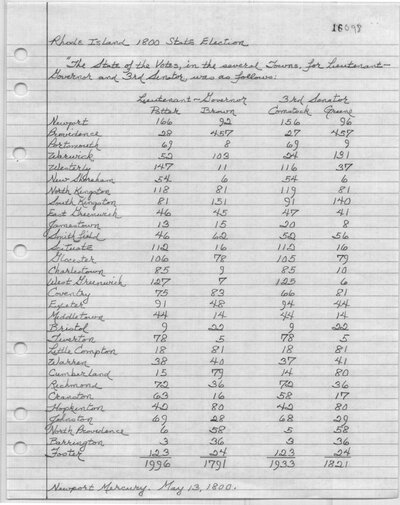 16098
Rhode Island 1800 State Election
"The State of the Votes, in the several Towns, for Lieutenant-
Governor and 3rd Senator was as follows:
Lieutenant-Governor 3rd Senator
Potter Brown Comstock Greene
Newport 166 92 156 96
Providence 28 457 27 457
Portsmouth 69 8 69 9
Warwick 52 103 24 131
Westerly 147 11 116 37
New Shoreham 54 6 54 6
North Kingston 118 81 119 81
South Kingston 81 151 91 140
East Greenwich 46 45 47 41
Jamestown 13 15 20 8
Smithfield 46 62 52 56
Scituate 112 16 112 16
Glocester 106 78 105 79
Charlestown 85 9 85 10
West Greenwich 127 7 125 6
Coventry 75 83 66 81
Exeter 91 48 94 44
Middletown 44 14 44 14
Bristol 9 22 9 22
Tiverton 78 5 78 5
Little Compton 18 81 18 81
Warren 38 40 37 41
Cumberland 15 79 14 80
Richmond 72 36 72 36
Cranston 63 16 58 17
Hopkinton 42 80 42 80
Johnston 69 28 68 29
North Providence 6 58 5 58
Barrington 3 36 3 36
Foster 123 24 123 24
1996 1791 1933 1821
Newport Mercury. May 13, 1800.